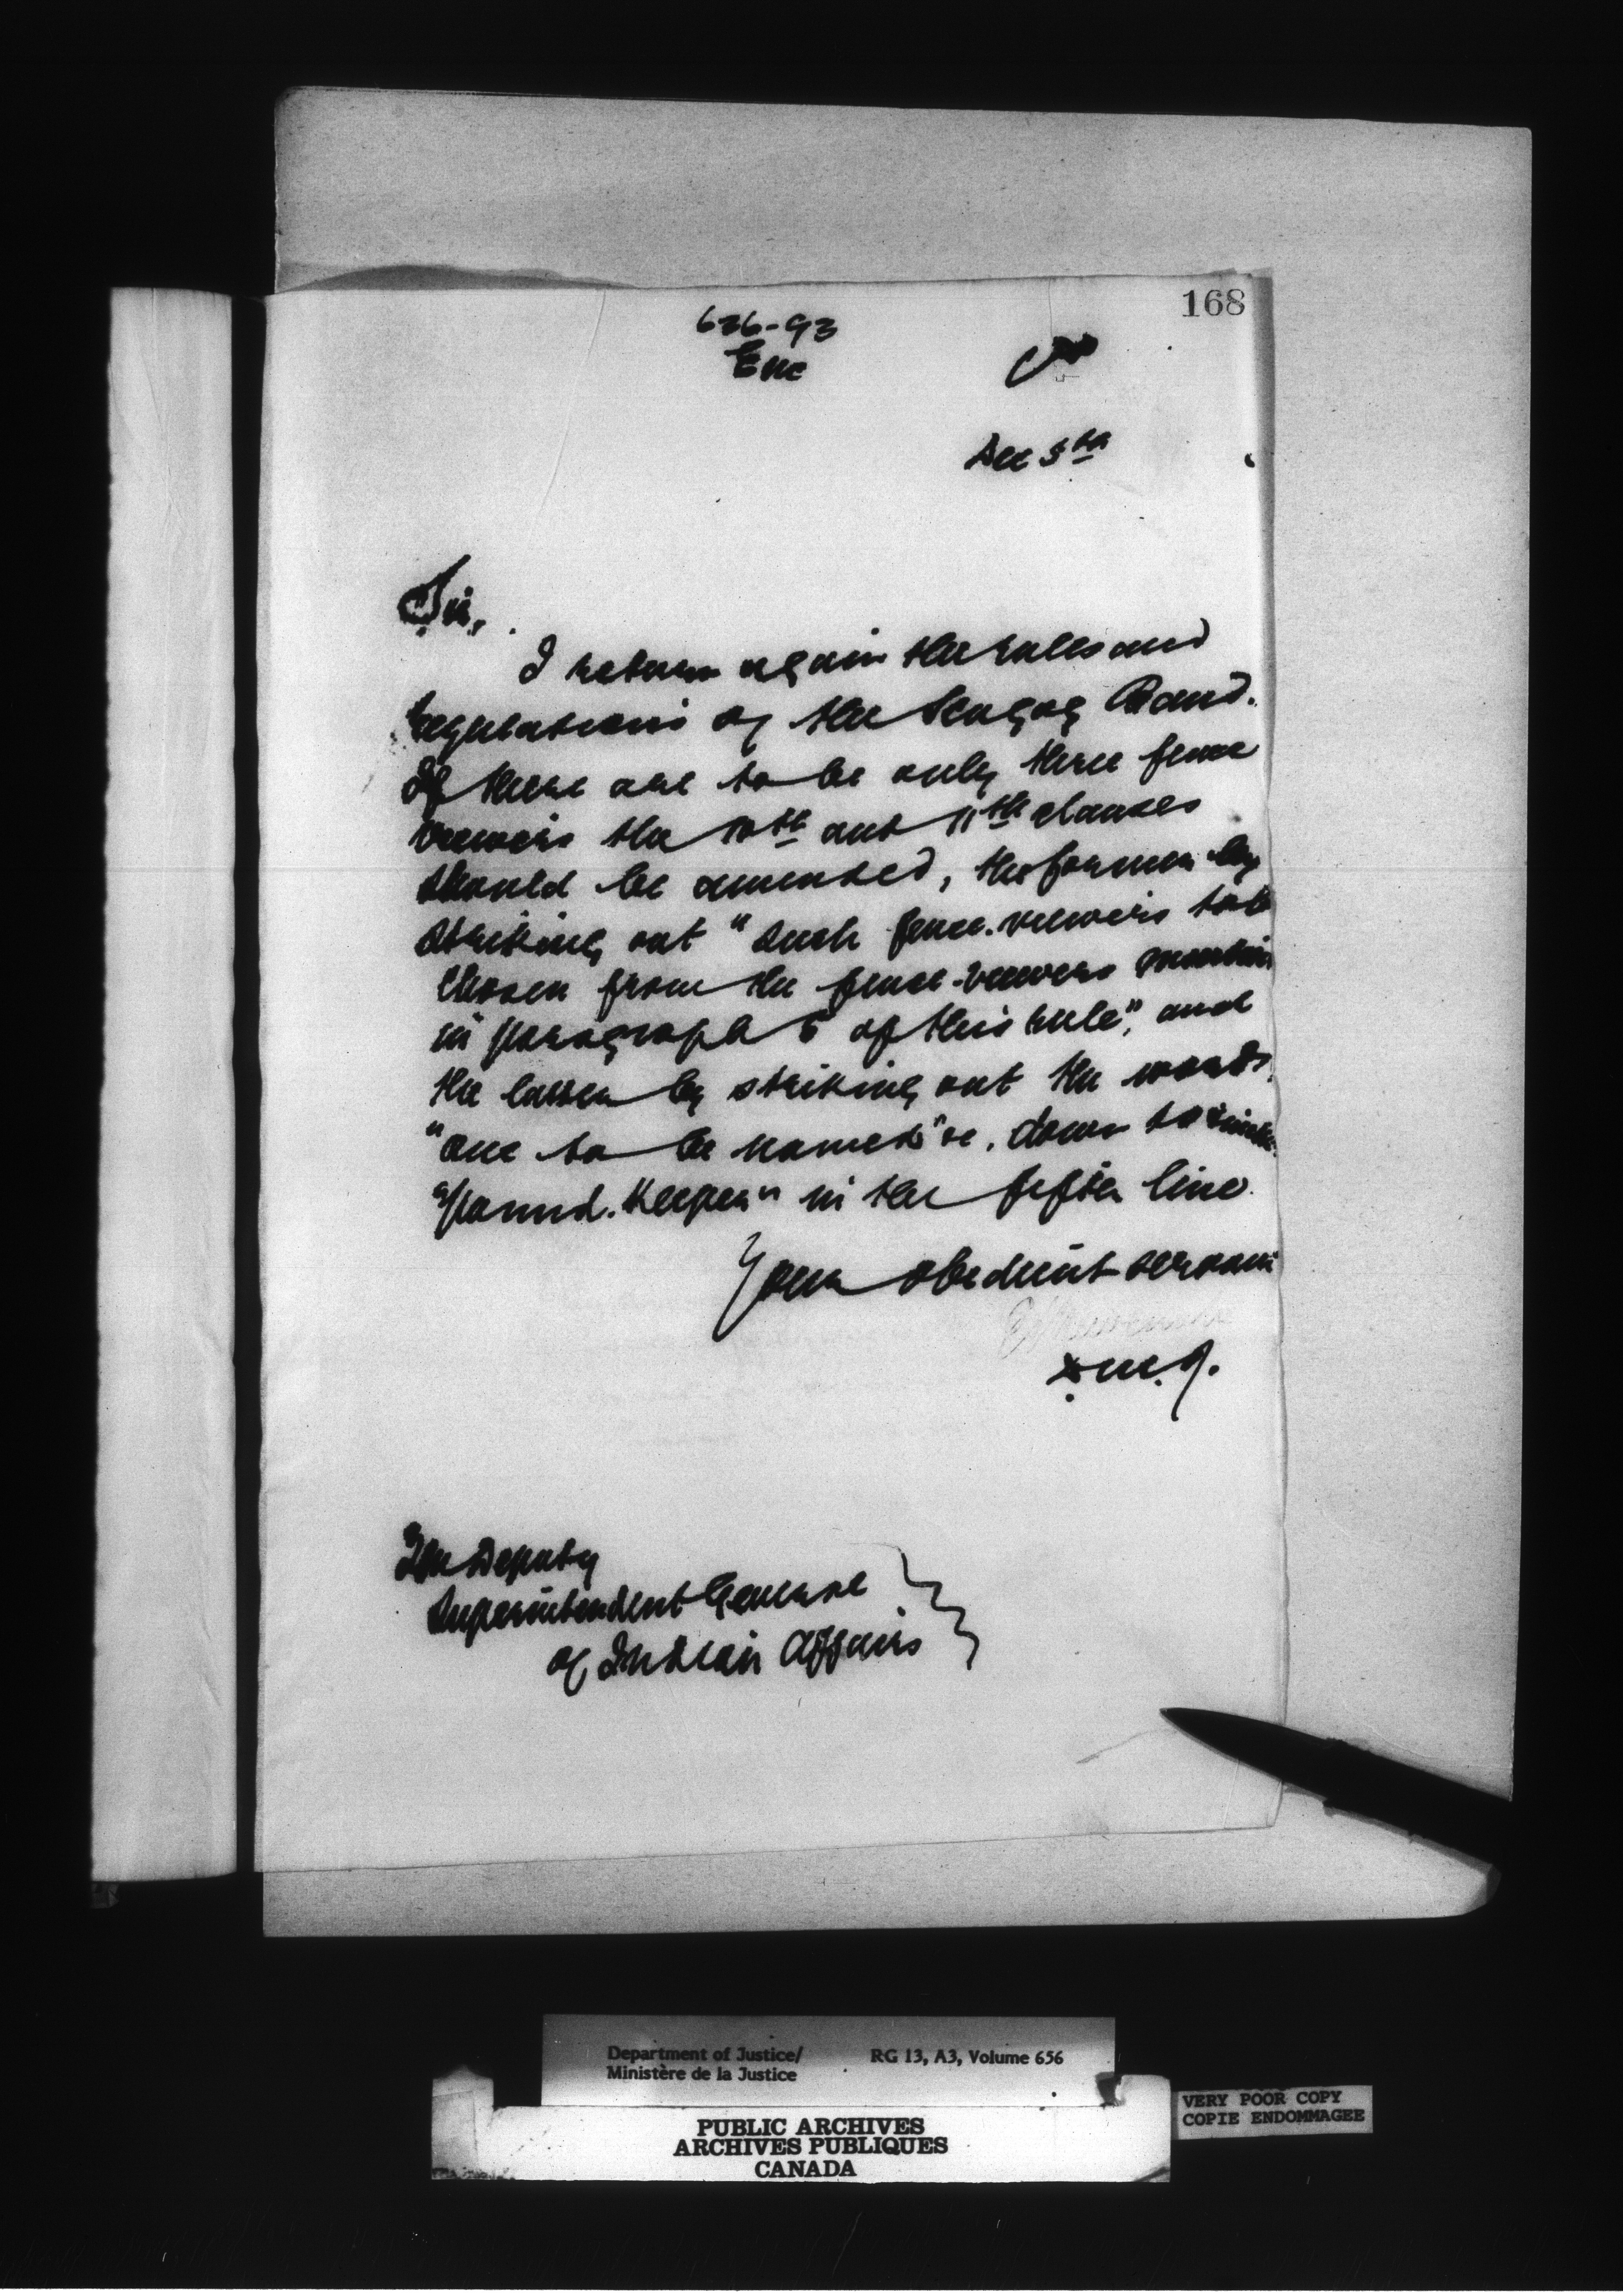 168
626-93
Enc
Dec 5th
Sir,
I return again the rules and
regulations of the Scugog Band.
If there are to be only three fence
viewers the 10th and 11th clauses
should be amended, the former by
striking out "such fence-viewers to be
chosen from the fence-viewers mention
in paragraph 6 of this rule", and
the latter by striking out the words
"one to be named" &c. down to
"pound-keeper" in the fifth line.
Your obedient servant
D.M.J.
The Deputy
Superintendent General
of Indian Affairs
Department of Justice/ RG 13, A3, Volume 656
Ministère de la Justice
VERY POOR COPY
COPIE ENDOMMAGEE
PUBLIC ARCHIVES
ARCHIVES PUBLIQUES
CANADA